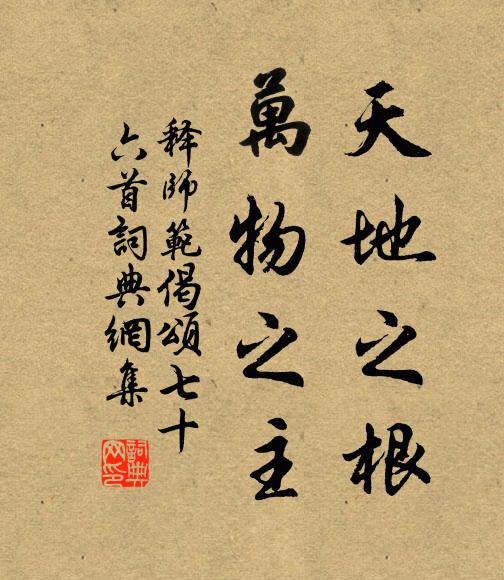 天地之根
萬物之主
释師範偈頌七十
六首詞典網集
詞典网印